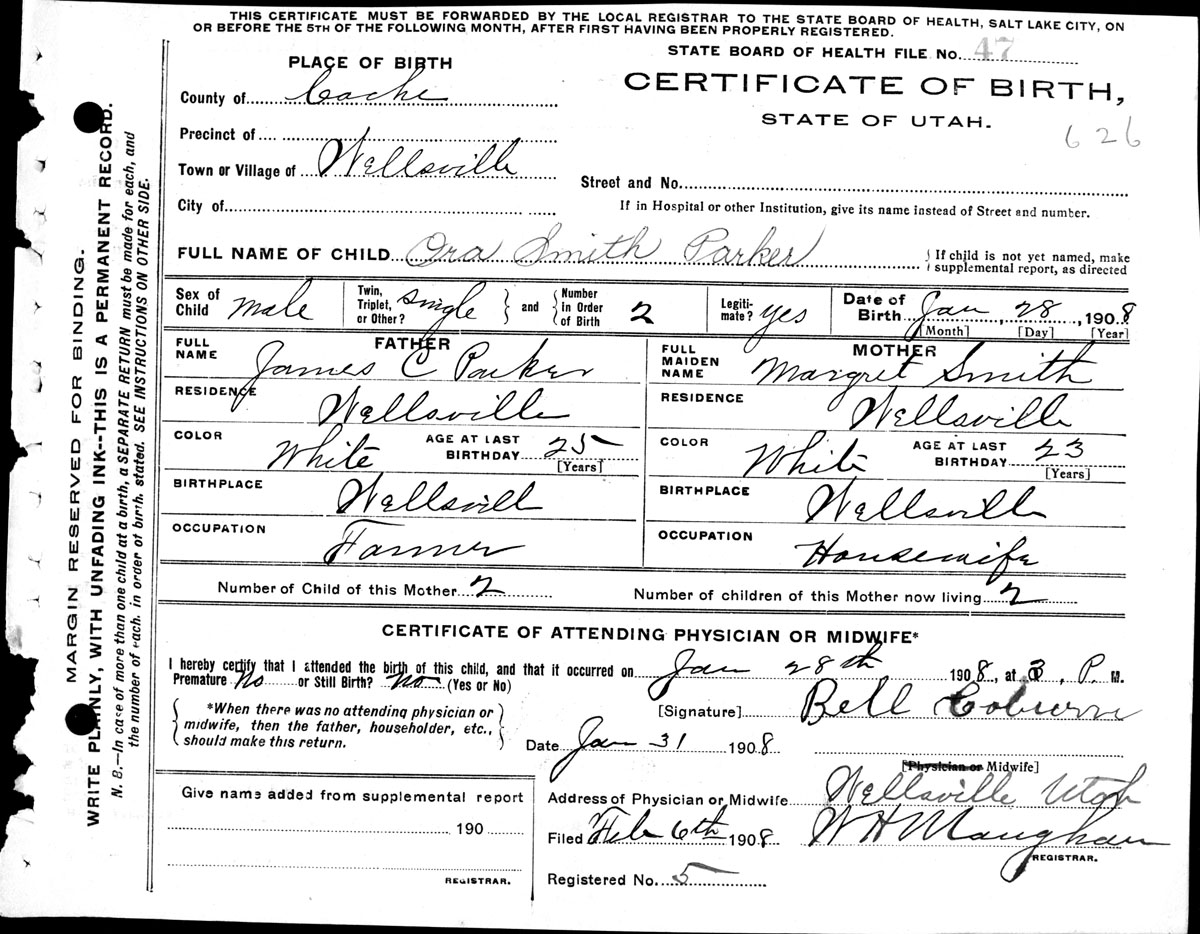 THIS CERTIFICATE MUST BE FORWARDED BY THE LOCAL REGISTRAR TO THE STATE BOARD OF HEALTH, SALT LAKE CITY, ON
OR BEFORE THE 5TH OF THE FOLLOWING MONTH, AFTER FIRST HAVING BEEN PROPERLY REGISTERED.
STATE BOARD OF HEALTH FILE No. 47
PLACE OF BIRTH
CERTIFICATE OF BIRTH,
STATE OF UTAH.
626
County of Cache
Precinct of
Town or Village of Wellsville
City of
Street and No.
If in Hospital or other Institution, give its name instead of Street and number.
FULL NAME OF CHILD Ora Smith Parker
If child is not yet named, make
supplemental report, as directed
Sex of Child male Twin, Triplet, or Other? single and Number in Order of Birth 2 Legiti-mate? yes Date of Birth Jan 28, 1908
[Month] [Day] [Year]
FATHER
FULL NAME James C Parker
RESIDENCE Wellsville
COLOR White AGE AT LAST BIRTHDAY 25 [Years]
BIRTHPLACE Wellsvill
OCCUPATION Farmer
MOTHER
FULL MAIDEN NAME Margret Smith
RESIDENCE Wellsville
COLOR White AGE AT LAST BIRTHDAY 23 [Years]
BIRTHPLACE Wellsville
OCCUPATION Housewife
Number of Child of this Mother 2 Number of children of this Mother now living 2
CERTIFICATE OF ATTENDING PHYSICIAN OR MIDWIFE*
I hereby certify that I attended the birth of this child, and that it occurred on Jan 28th 1908, at 3, P. M.
Premature No or Still Birth? No (Yes or No)
*When there was no attending physician or
midwife, then the father, householder, etc.,
should make this return.
[Signature] Bell Coburn
Date Jan 31 1908
[Physician or Midwife]
Give name added from supplemental report
190
REGISTRAR.
Address of Physician or Midwife Wellsville Utah
Filed Feb 6th 1908 W H Maughan
REGISTRAR.
Registered No. 5
MARGIN RESERVED FOR BINDING.
WRITE PLAINLY, WITH UNFADING INK--THIS IS A PERMANENT RECORD.
N. B.—In case of more than one child at a birth, a SEPARATE RETURN must be made for each, and
the number of each, in order of birth, stated. SEE INSTRUCTIONS ON OTHER SIDE.